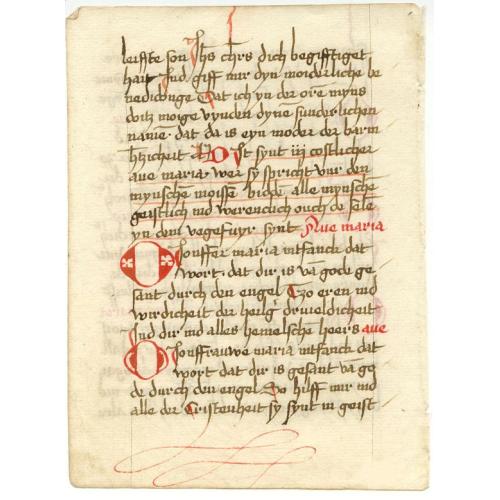 leifste son Jhs chrs dich begifftiget
hait Jnd giff mir dyn moiderliche be
nedidonge Dat ich yn der ore myns
doitz moige vynden dynē sunderlichen
namē. dat da is eyn moder der barm
htzicheit Dit synt iij costlicher
aue maria. wer sy spricht vur den
mynschē moisse bidde alle mynschē
geistlich ind werenclich ouch de sele
yn dem vegefuyr synt Aue maria
O Jouffer maria intfanck dat
wort. dat dir is vā gode ge
sant durch den engel Tzo eren ind
wirdicheit der heilg drineldicheit
Jnd dir ind alles hemelsche heers aue
O Jouffrauwe maria intfanck dat
wort dat dir is gesant vā go
de durch den engel So hilff mir ind
alle der Cristenheit sy synt in geist